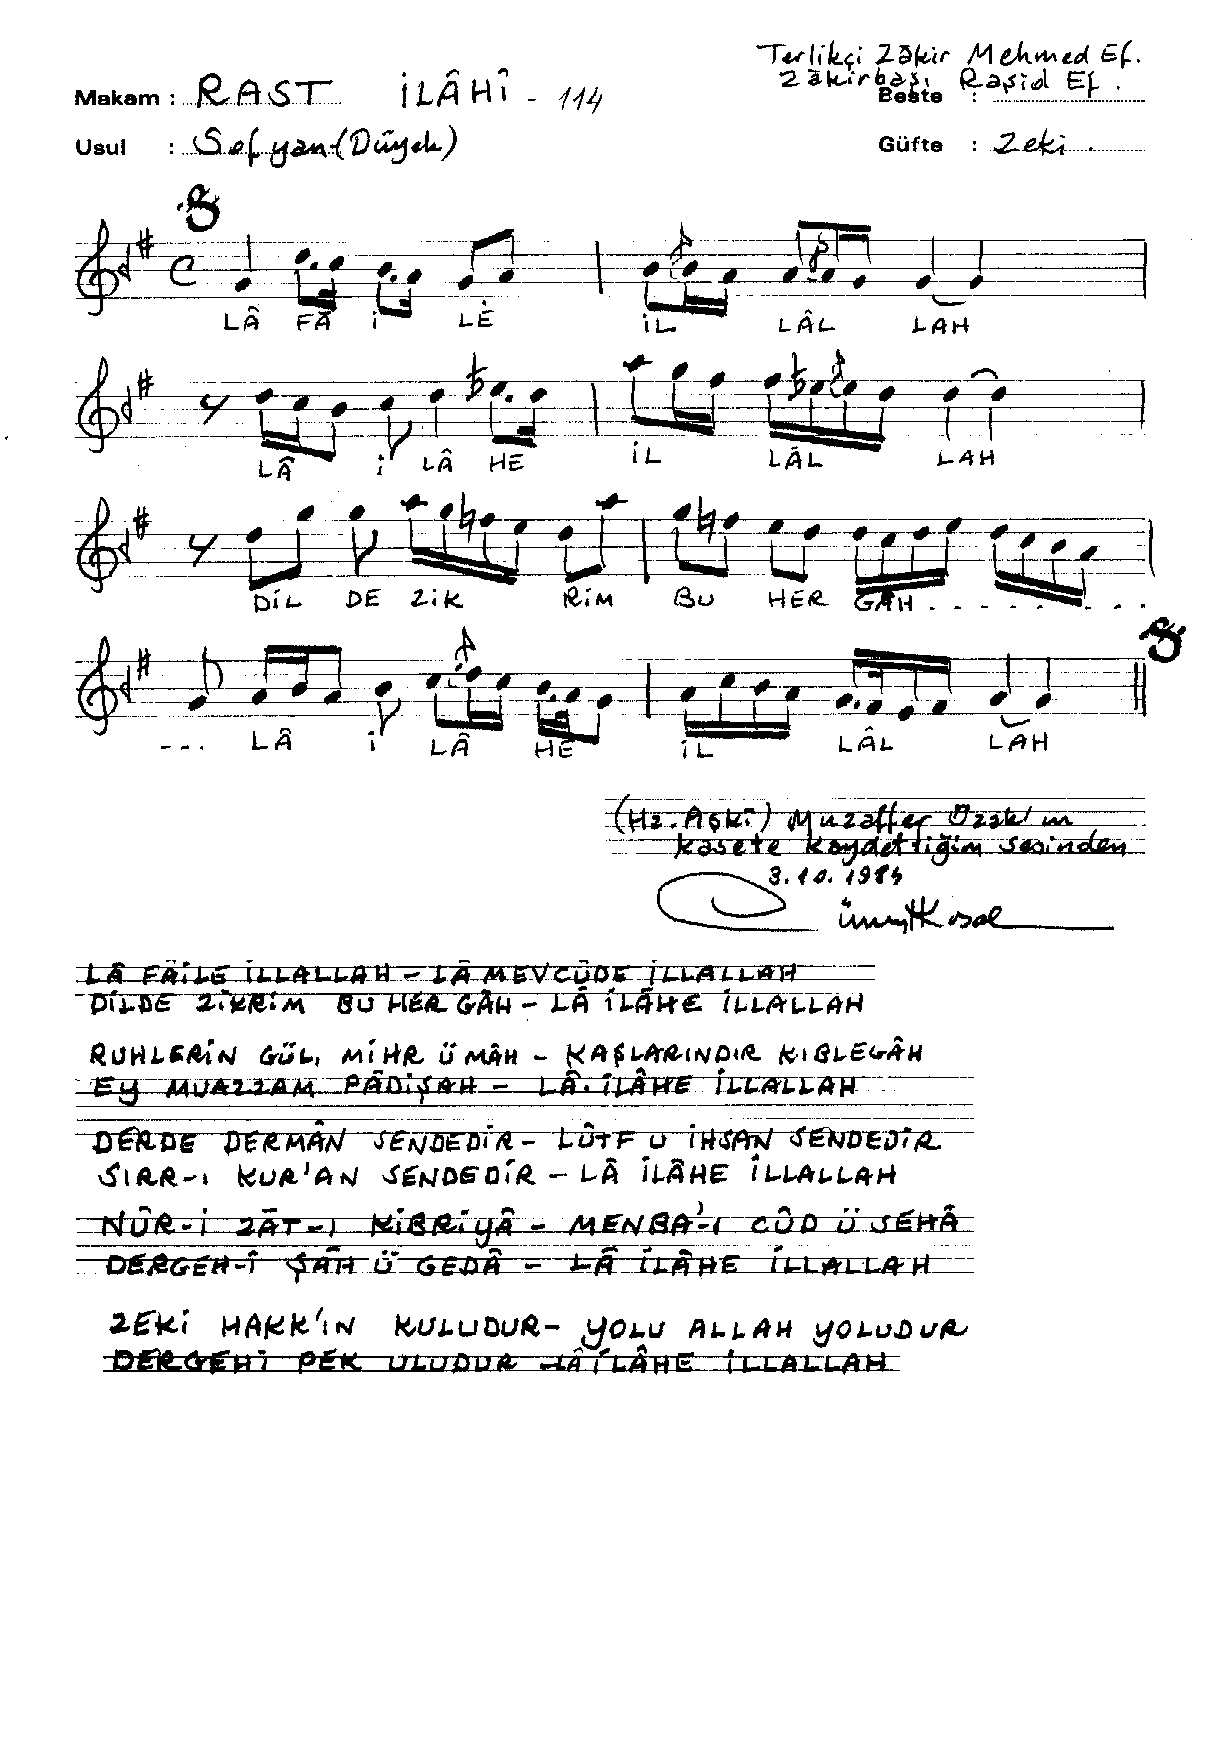 Terlikçi Zâkir Mehmed Ef.
Zâkirbaşı Raşid Ef.
Makam : RAST İLÂHÎ - 114 Beste :
Usul : Sofyan (Düyek) Güfte : Zeki
LÂ FÂ İ LE İL LÂL LAH
LÂ İ LÂ HE İL LÂL LAH
DİL DE ZİK RİM BU HER GÂH........
--- LÂ İ LÂ HE İL LÂL LAH
(Hz. Aşkî) Muzaffer Ozak'ın
kasete kaydettiğim sesinden
3.10.1984
LÂ FÂİLE İLLALLAH - LÂ MEVCÛDE İLLALLAH
DİLDE ZİKRİM BU HER GÂH - LÂ İLÂHE İLLALLAH
RUHLERİN GÜL, MİHR Ü MÂH - KAŞLARINDIR KIBLEGÂH
EY MUAZZAM PÂDİŞAH - LÂ İLÂHE İLLALLAH
DERDE DERMÂN SENDEDİR - LÛTF U İHSAN SENDEDİR
SIRR-I KUR'AN SENDEDİR - LÂ İLÂHE İLLALLAH
NÛR-İ ZÂT-I KİBRİYÂ - MENBA'-I CÛD Ü SEHÂ
DERGEH-Î ŞÂH Ü GEDÂ - LÂ İLÂHE İLLALLAH
ZEKİ HAKK'IN KULUDUR - YOLU ALLAH YOLUDUR
DERGEHİ PEK ULUDUR - LÂ İLÂHE İLLALLAH